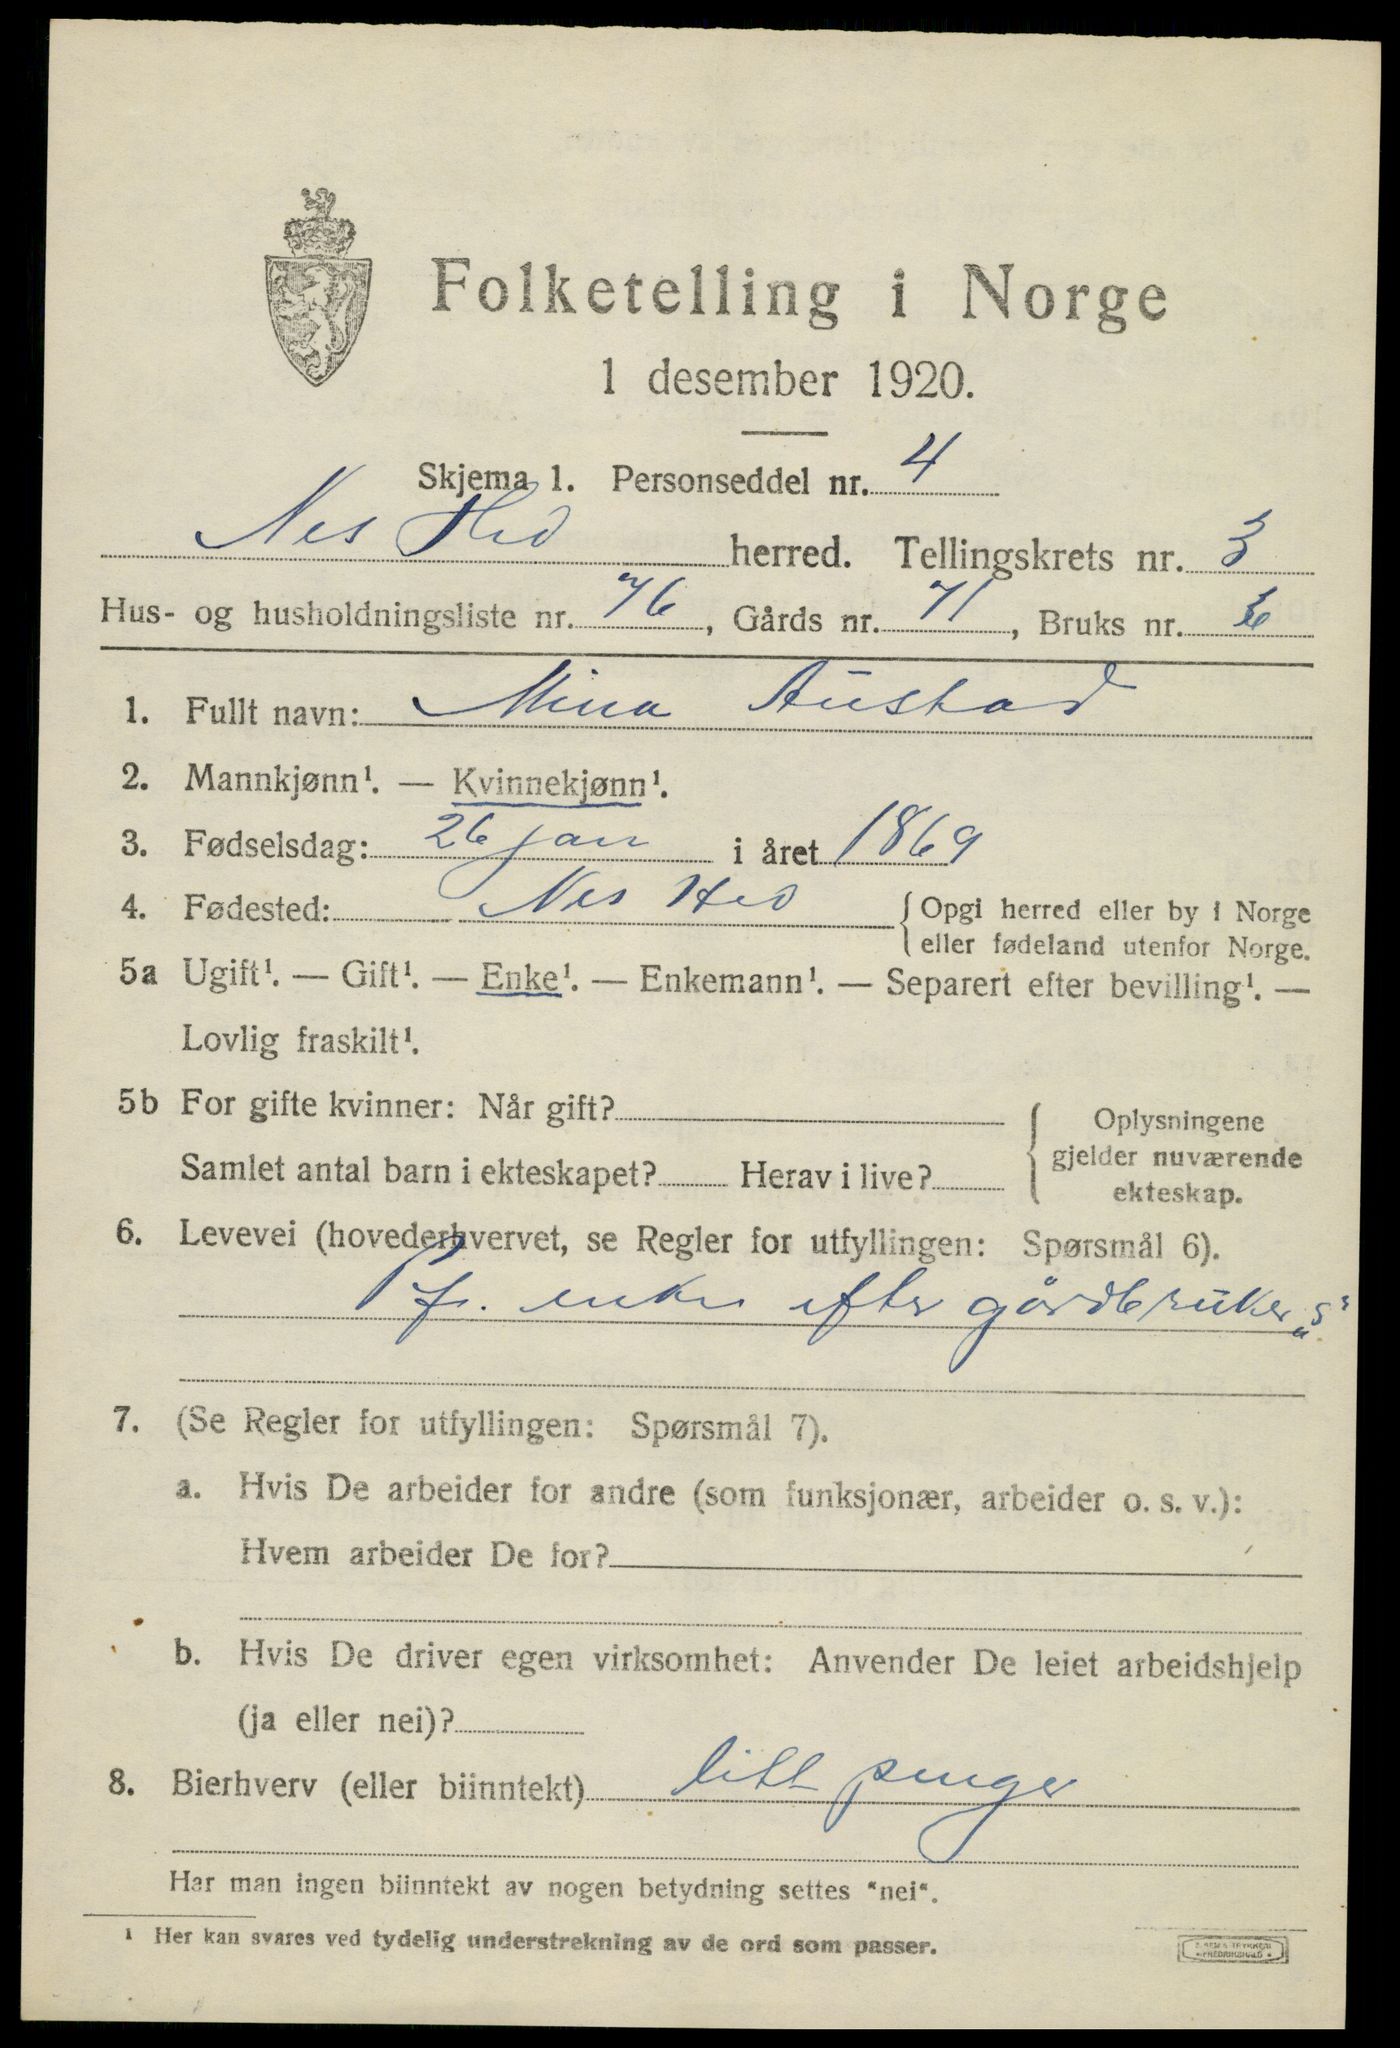 Folketelling i Norge
1 desember 1920.
Skjema 1. Personseddel nr. 4
Nes Hed herred. Tellingskrets nr. 3
Hus- og husholdningsliste nr. 76, Gårds nr. 71, Bruks nr.
1. Fullt navn: Mina Austad
2. Mannkjønn¹. — Kvinnekjønn¹.
3. Fødselsdag: 26 jan i året 1869
4. Fødested: Nes Hed {Opgi herred eller by i Norge
eller fødeland utenfor Norge.
5a Ugift¹. — Gift¹. — Enke¹. — Enkemann¹. — Separert efter bevilling¹. —
Lovlig fraskilt¹.
5b For gifte kvinner: Når gift?
Samlet antal barn i ekteskapet? Herav i live?
{Oplysningene
gjelder nuværende
ekteskap.
6. Levevei (hovederhvervet, se Regler for utfyllingen: Spørsmål 6).
enke efter gårdbruker „s"
7. (Se Regler for utfyllingen: Spørsmål 7).
a. Hvis De arbeider for andre (som funksjonær, arbeider o. s. v.):
Hvem arbeider De for?
b. Hvis De driver egen virksomhet: Anvender De leiet arbeidshjelp
(ja eller nei)?
8. Bierhverv (eller biinntekt) litt penger
Har man ingen biinntekt av nogen betydning settes "nei".
¹ Her kan svares ved tydelig understrekning av de ord som passer.